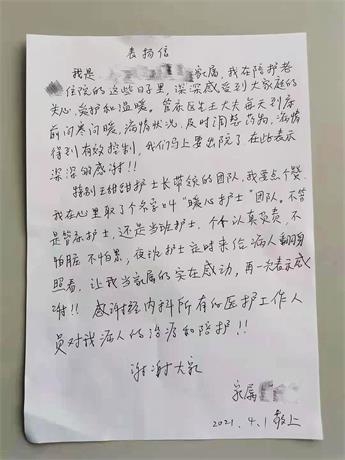 表扬信
我是 家属，我在陪护老
住院的这些日子里，深深感受到大家庭的
关心，爱护和温暖。管床医生王大夫每天到床
前问寒问暖，病情状况，及时调整药物，病情
得到有效控制，我们马上要出院了在此表示
深深的感谢!!
特别王甜甜护士长带领的团队，我要点个赞，
我在心里取了个名字叫"暖心护士"团队，不管
是管床护士，还是当班护士，个个认真负责，不
怕脏 不怕累，夜班护士定时来给病人翻身
照看，让我当家属的实在感动，再一次表示感
谢!! 感谢经内科所有的医护工作人
员对我病人的治疗和陪护!!
谢谢大家
家属
2021. 4. 1 敬上